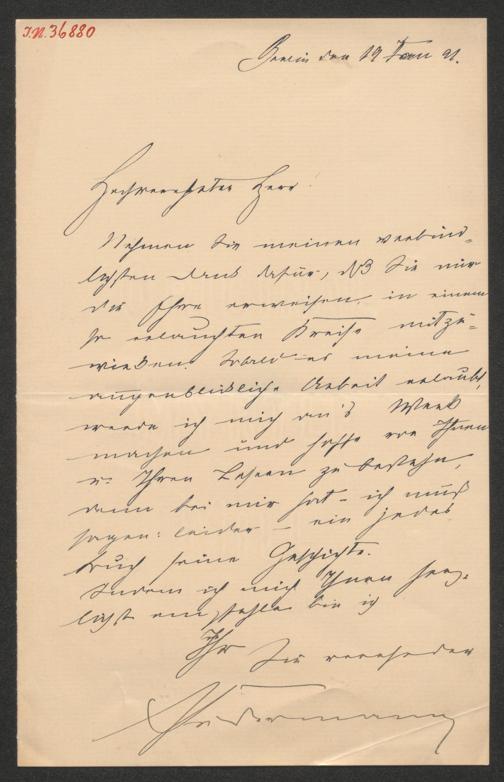 J.N. 36880
Berlin den 19 Jan 91.
Hochverehrter Herr
Nehmen Sie meinen verbind-
lichsten Dank dafür, daß Sie mir
die Ehre erweisen, in einem
so erlauchten Kreise mitzu-
wirken. Sobald es meine
augenblickliche Arbeit erlaubt,
werde ich mich an's Werk
machen und hoffe vor Ihnen
u. Ihren Lesern zu bestehn,
denn bei mir hat – ich muß
sagen: leider – ein jedes
Buch seine Geschichte.
Indem ich mich Ihnen herz-
lichst empfehle bin ich
Ihr Sie verehrender
HSudermann